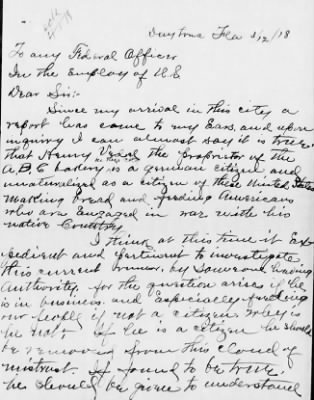 Daytona Fla 3/2/18
To any Federal Officer
In the Employ of U.S
Dear Sir:-
Since my arrival in this city a
report has come to my Ears, and upon
inquiry I can almost say it is true
that Henry the Proprietor of the
A.B.C bakery is a german citizen and
unnaturalized as a citizen of these United States
Making bread and feeding Americans
who are Engaged in war with his
native Country.
I think at this time it Ex-
pedient and pertinent to investigate
this current rumor, by someone having
Authority. for the question arises if he
is in business and especially feeding
our people if not a citizen, why is
he not? If he is a citizen he should
be removed from this cloud of
mistrust. If found to be true,
he should be given to understand